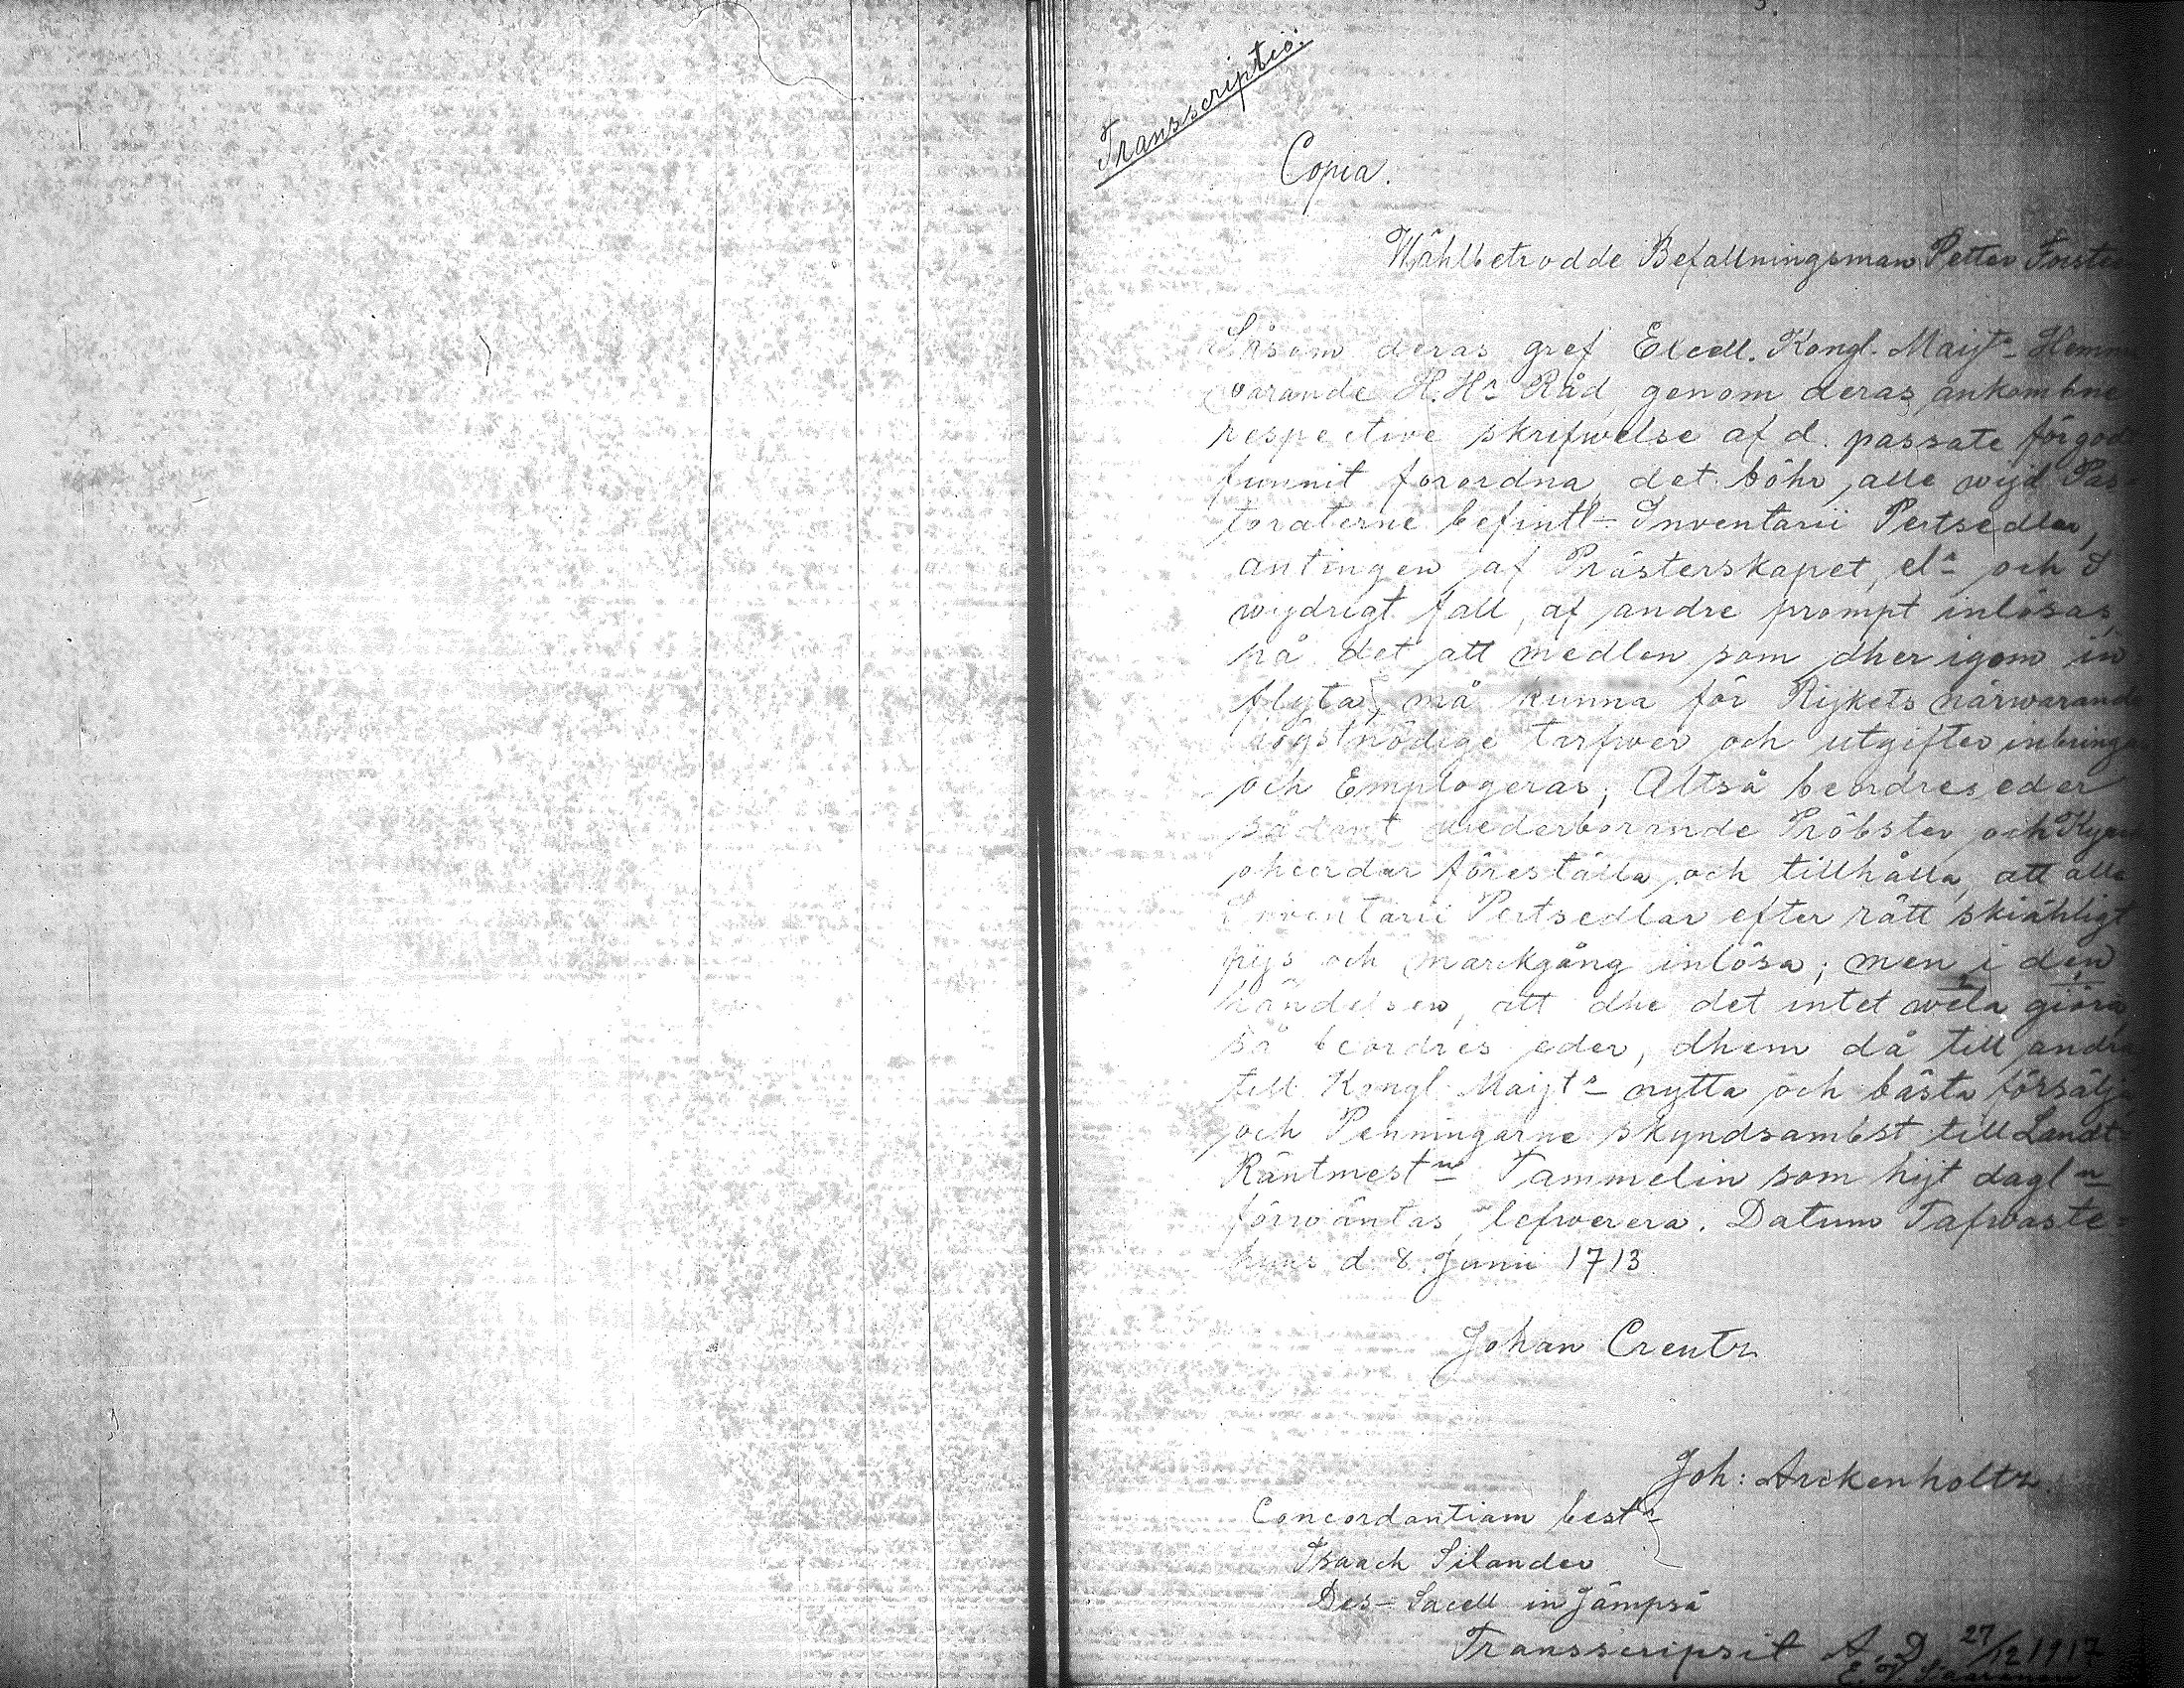 Transscriptio.
Copia.
Wählbetrodde Befallningsman Petter
Såsom deras gref Excell. Kongl. Maijts Hemma
varande H.Hr Råd genom deras ankombne
respective skrifwelse af d. passate förgod
funnit forordna, det böhr, alle wijd Pas-
toraterne befintl- Inventarii Pertsedlar,
antingen af Prästerskapet, elr och i
wijdrigt fall, af andre prompt inlösas,
på det att medlen som dher igom in
flyta, må kunna för Rijkets närwarande
högstnödige tarfwer och utgifter inbringas
och Employeras; Altså beordres eder
sådant wederbörande Pröbster och Kyrc
oheerdar föreställa och tillhålla, att alla
Inventarii Pertsedlar efter rätt skiähligt
prijs och marckgång inlösa; men i den
händelsen, att dhe det intet wela giöra,
så beordres eder, dhem då till andra
till Kongl. Maijts nytta och bästa försälja
och Penningarne skyndsambst till Landt-
Räntmestn Tammelin som hijt dagln
förwäntas, lefwerera. Datum Tafwaste-
huus d. 8. Junii 1713.
Johan Creutz
Joh: Arckenholtz.
Concordantiam bestr
Isaach Silander
Des- Sacell in Jämpsä
Transscripsit A. D. 27/12 1917